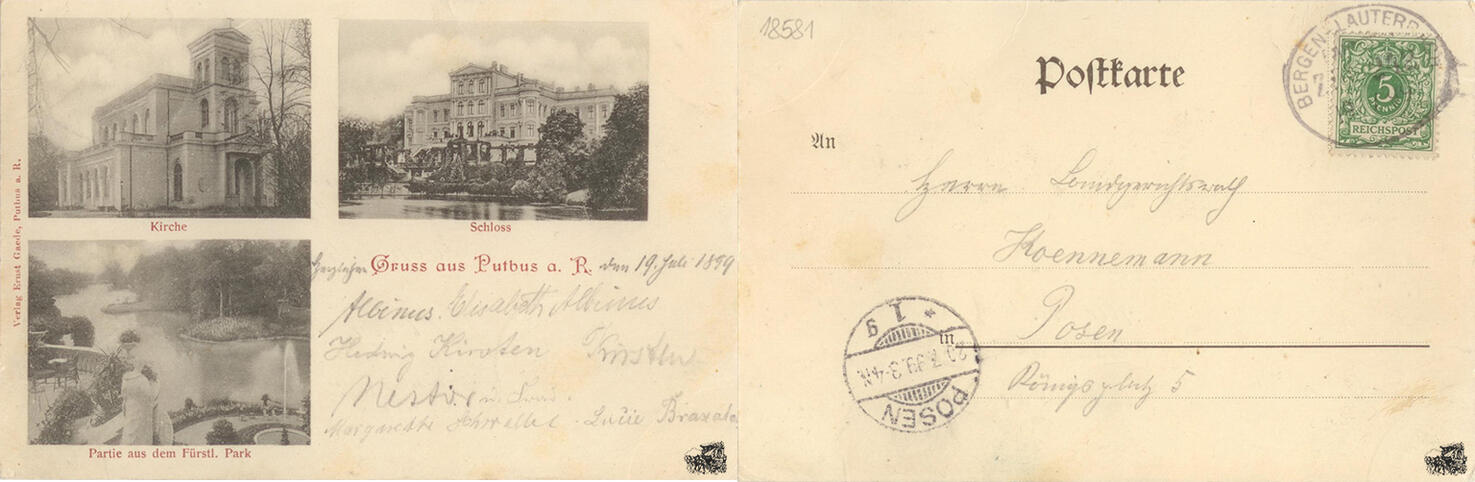 Verlag Ernst Gaede, Putbus a. R.
Kirche
Schloss
Herzlichen Gruss aus Putbus a. R. den 19. Juli 1899
Albinus. Elisabeth Albinus
Hedwig Kirsten Kirsten
Nestor u. Frau.
Margarethe Lucie
Partie aus dem Fürstl. Park
18581
Postkarte
BERGEN-LAUTERB
5
PFENNIG
REICHSPOST
An
Herrn Landgerichtsrath
Koennemann
in Posen
Königsplatz 5
* 1 g
20.7.99.3-4.N.
POSEN